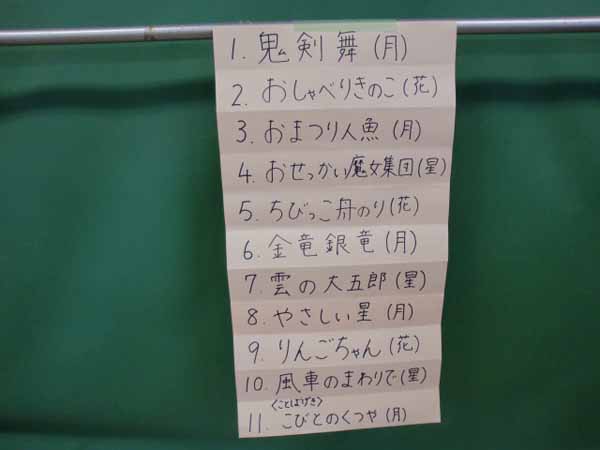 1. 鬼剣舞(月)
2. おしゃべりきのこ(花)
3. おまつり人魚(月)
4. おせっかい魔女集団(星)
5. ちびっこ舟のり(花)
6. 金竜銀竜(月)
7. 雲の大五郎(星)
8. やさしい星(月)
9. りんごちゃん(花)
10. 風車のまわりで(星)
〈ことばげき〉
11. こびとのくつや(月)